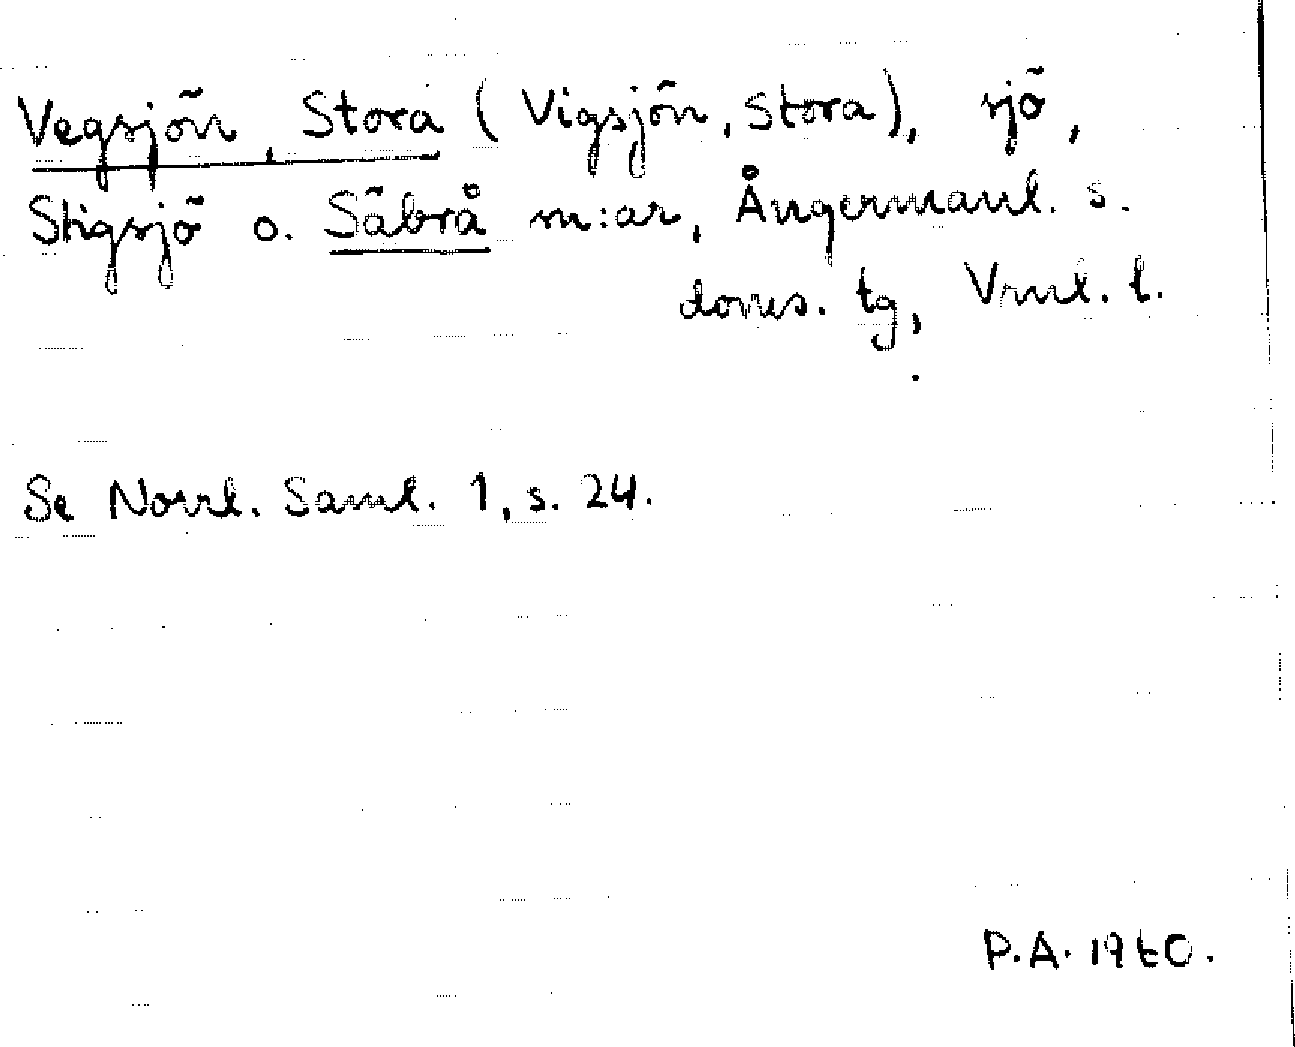 Vegsjön, Stora (Vigsjön, Stora), sjö,
Stigsjö o. Säbrå m:ar, Ångermanl. s.
doms. tg, Vrnl. l.
Se Norrl. Saml. 1, s. 24.
P.A. 1960.